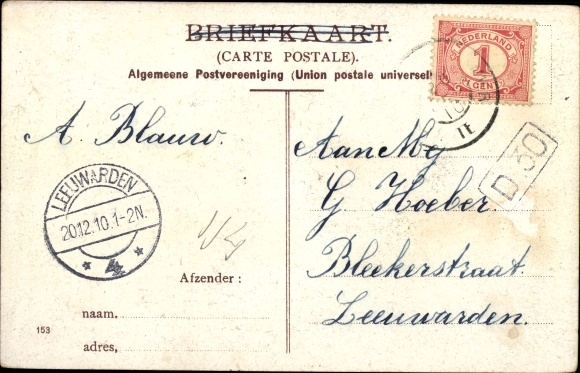 BRIEFKAART.
(CARTE POSTALE).
Algemeene Postvereeniging (Union postale universel
NEDERLAND
1
CENT
A. Blauw.
Aan Mej
G Hoeber.
Bleekerstraat
Leeuwarden.
D 30
LEEUWARDEN
20.12.10.1-2N.
* 4 *
Afzender :
naam,
153
adres,